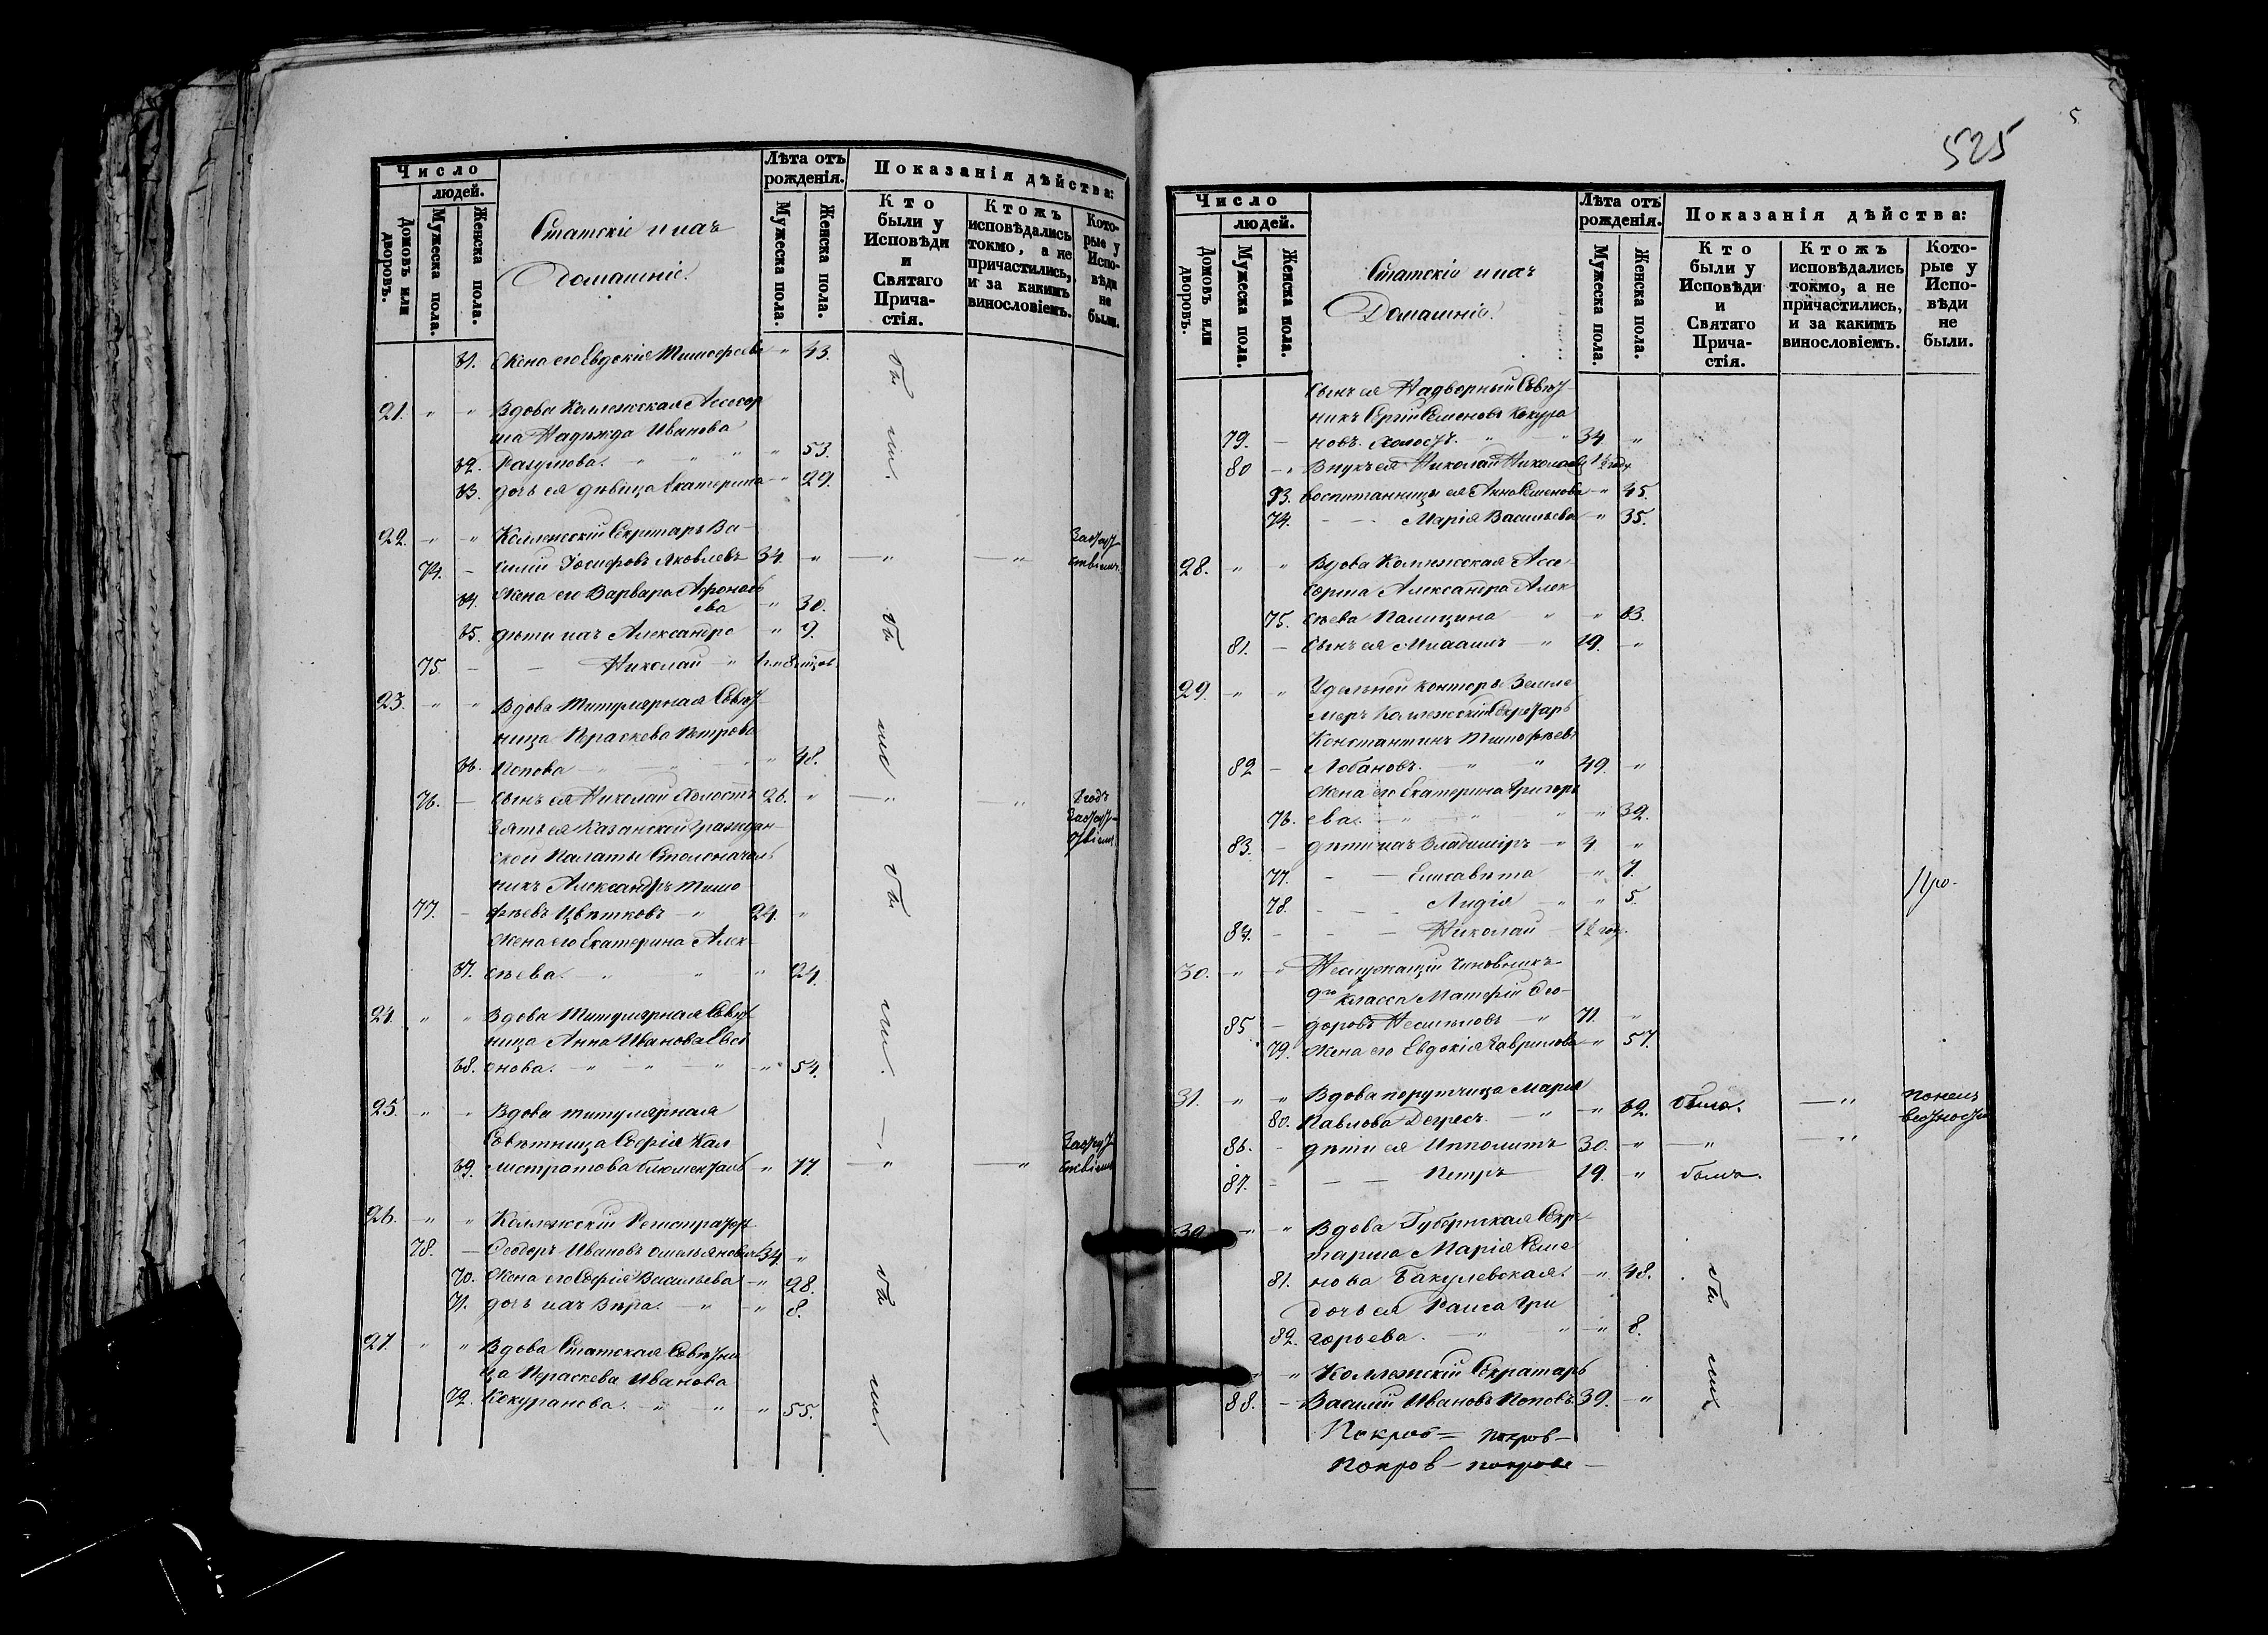 Число
людей.
Домовъ или дворовъ.
Мужеска пола.
Женска пола.
Статскіе и ихъ
Домашніе.
Лѣта отъ рожденія.
Мужеска пола.
Женска пола.
Показанія дѣйства:
Кто были у Исповѣди и Святаго Прича-стія.
Ктожъ исповѣдались токмо, а не причастились, и за какимъ винословіемъ.
Кото-рые у Испо-вѣди не были.
61. Жена его Евдокія Тимофеева " 43.
21. " " Вдова Коллежская Ассесор
ша Надежда Иванова
62. Разумова. " " " " 53.
63. дочь ея дѣвица Екатерина " 29.
22. " " Коллежскій Секретарь Ва-
74. - силій Іосифовъ Яковлевъ 34. " — " — " За отсут
ствіемъ.
64. Жена его Варвара Афонась
ева " 30.
65. дѣти ихъ Александра " 9.
75. - - Николай
23. " " Вдова Титулярная Совѣт
ница Параскева Петрова
66. Попова — " — " 48.
76. — Сынъ ея Николай холостъ 26. " — " — " 1 годъ
За отсут-
ствіемъ
Зять ея Казанской Граждан-
ской Палаты Столоначаль
никъ Александръ Тимо
77. - фѣевъ Цвѣтковъ — " 24. "
Жена его Екатерина Алек-
67. сѣева. — " " " 24.
24. " " Вдова Титулярная Совѣт
ница Анна Иванова
68. снова. — " — " — " — " 54.
25. " " Вдова титулярная
Совѣтница Софія Кал
69. листратова " 77. — " — " За отсут
ствіемъ
26. " " Коллежскій Регистраторъ
78. — Феодоръ Ивановъ Омельяновичъ 34. "
70. Жена его Софія Васильева — " 28.
71. дочь ихъ Вѣра. — " — " 8.
27. " " Вдова Статская Совѣтни
ца Параскева Иванова
72. Кокуранова. — " — " " 55.
бы
ли.
бы
ли
бы
ли.
бы
ли
525
5
Число
людей.
Домовъ или дворовъ.
Мужеска пола.
Женска пола.
Статскіе и ихъ
Домашніе.
Лѣта отъ рожденія.
Мужеска пола.
Женска пола.
Показанія дѣйства:
Кто были у Исповѣди и Святаго Прича-стія.
Ктожъ исповѣдались токмо, а не причастились, и за какимъ винословіемъ.
Кото-рые у Испо-вѣди не были.
Сынъ ея Надворный Совѣт-
никъ Сергій Семеновъ Кокура
79. — новъ. Холостъ. " " 34 "
80 — " Внукъ ея Николай Николаевъ 1½ году
73. Воспитанницы ея Анна Семенова — " 45.
74. — — Марія Васильева " 35.
28. " " Вдова Коллежская Ассе
сорша Александра Алек
75. сѣева Палицина " " 63.
81. — Сынъ ея Михаилъ — " 19. "
29. " " Удѣльной конторы Земле
меръ Коллежскій Секретарь
Константинъ Тимофѣевъ
82 — Лобановъ. — " " 49. "
Жена его Екатерина Григорь
76. ева. — " — " " " 32.
83. — дѣти ихъ Владиміръ — " 4 "
77. — — Елисавета — " 7.
78. — — Лидія — " " 5.
84. — — Николай — 1½ год.
30. " " Неслужащій Чиновникъ
9го класса Матфій Фео-
85. — доровъ Несмѣловъ — " 71. "
79. Жена его Евдокія Гаврилова — " 57.
31. " " Вдова порутчица Марія
80. Павлова — " — " 62. была. — "
86. — дѣти ея Ипполитъ 30. " — " — "
87. — — — Петръ 19. " былъ.
32. " " Вдова Губернская Секре-
тарша Марія Семе
81. нова Бакулевская. — " 48.
Дочь ея Раиса Гри
82. горьева. — " " — " 8.
" Коллежскій Секратарь
88. — Василій Ивановъ Поповъ. 39. — "
бы
ли
Покров= покров—
покров— покрове—